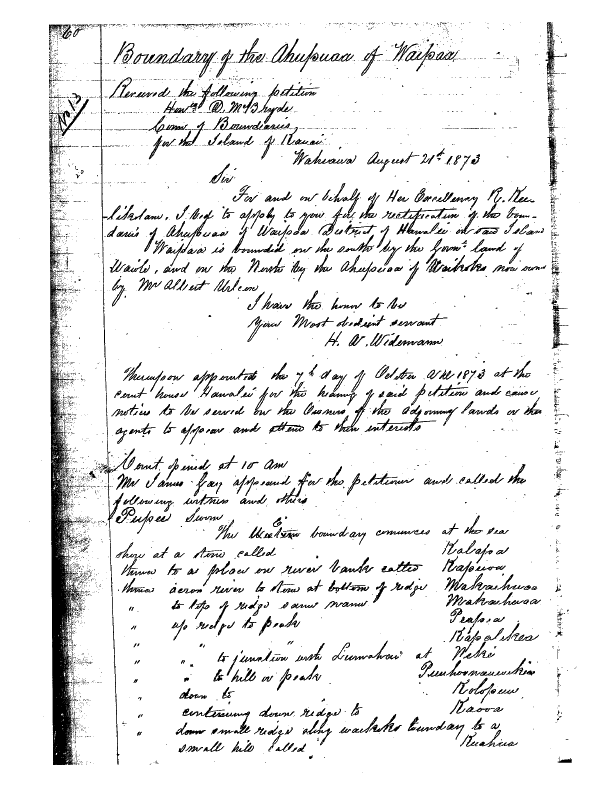 60
Boundary of the Ahupuaa of Waipaa
No 13
Received the following petition
Honbl D. McBryde
Comr of Boundaries,
for the Island of Kauai
Wahiawa August 21st 1873
Sir
For and on behalf of Her Excellency R. Kee-
likolani, I beg to apply to you for the rectification of the boun-
daries of Ahupuaa of Waipaa District of Hanalei on said Island
Waipaa is bounded on the south by the Govmt land of
Waioli, and on the North by the Ahupuaa of Waikoko now owned
by Mr Albert Wilcox
I have the honor to be
Your Most obedient servant
H. A. Widemann
Thereupon appointed the 7th day of October A.D. 1873 at the
court house Hanalei for the hearing of said petition and cause
notices to be served on the Owners of the adjoining lands or their
agents to appear and attend to their interests
Court opened at 10 am
Mr James Gay appeared for the petitioner and called the
following witness and others
Pupee Sworn
The Western E boundary commences at the sea
shore at a stone called Kalapa
thence to a place on river bank called
thence across river to stone at bottom of ridge Makaihuwaa
" to top of ridge same name Makaihuwaa
" up ridge to peak
" "
" " to junction with Lumahai at Weki
" " to hill or peak
" down to
" continuing down ridge to Kaova
" down small ridge along waikoko boundary to a
small hill called Kuahua